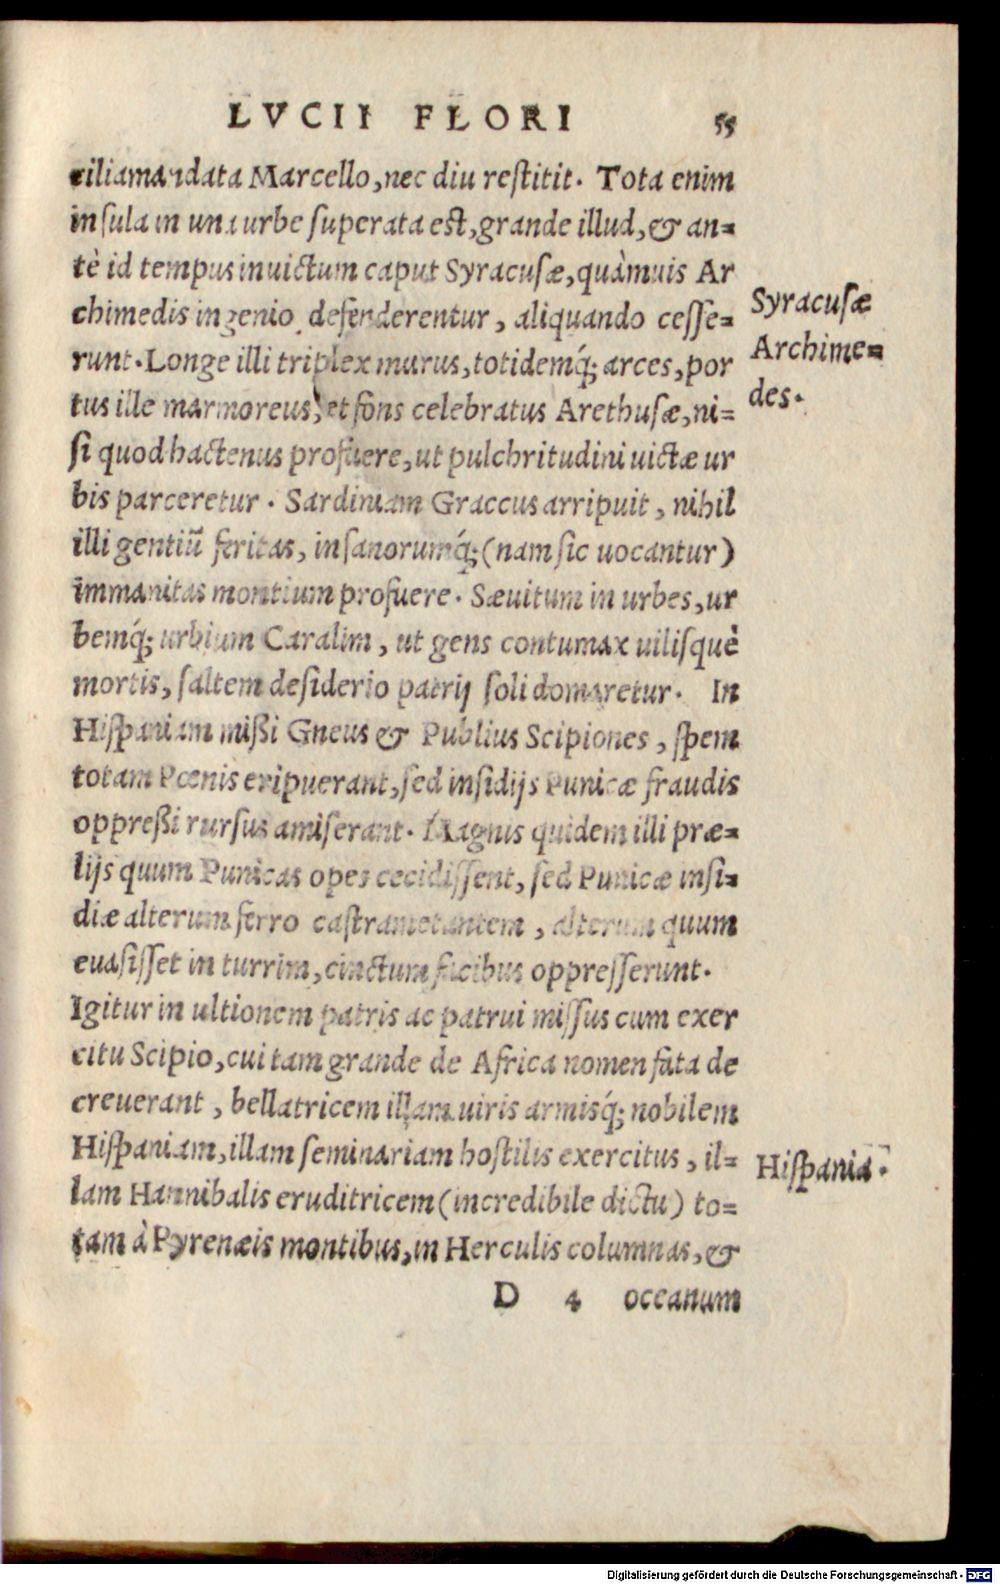 LVCII FLORI 55
cilia mandata Marcello, nec diu restitit. Tota enim
insula in una urbe superata est, grande illud, & an=
tè id tempus inuictum caput Syracusæ, quàmuis Ar
chimedis ingenio defenderentur, aliquando cesse=
runt. Longe illi triplex murus, totidemq́; arces, por
tus ille marmoreus, et fons celebratus Arethusæ, ni=
si quod hactenus profuere, ut pulchritudini uictæ ur
bis parceretur. Sardiniam Graccus arripuit, nihil
illi gentiũ feritas, insanorumq́; (nam sic uocantur)
immanitas montium profuere. Sæuitum in urbes, ur
bemq́; urbium Caralim, ut gens contumax uilisquè
mortis, saltem desiderio patrij soli domaretur. In
Hispaniam mißi Gneus & Publius Scipiones, spem
totam Pœnis eripuerant, sed insidijs Punicæ fraudis
oppreßi rursus amiserant. Magnis quidem illi præ=
lijs quum Punicas opes cecidissent, sed Punicæ insi=
diæ alterum ferro castrametantem, alterum quum
euasisset in turrim, cinctum facibus oppresserunt.
Igitur in ultionem patris ac patrui missus cum exer
citu Scipio, cui tam grande de Africa nomen fata de
creuerant, bellatricem illam uiris armisq́; nobilem
Hispaniam, illam seminariam hostilis exercitus, il=
lam Hannibalis eruditricem (incredibile dictu) to=
tam à Pyrenæis montibus, in Herculis columnas, &
D 4 oceanum
Syracusæ
Archime=
des.
Hispania.
Digitalisierung gefördert durch die Deutsche Forschungsgemeinschaft - DFG